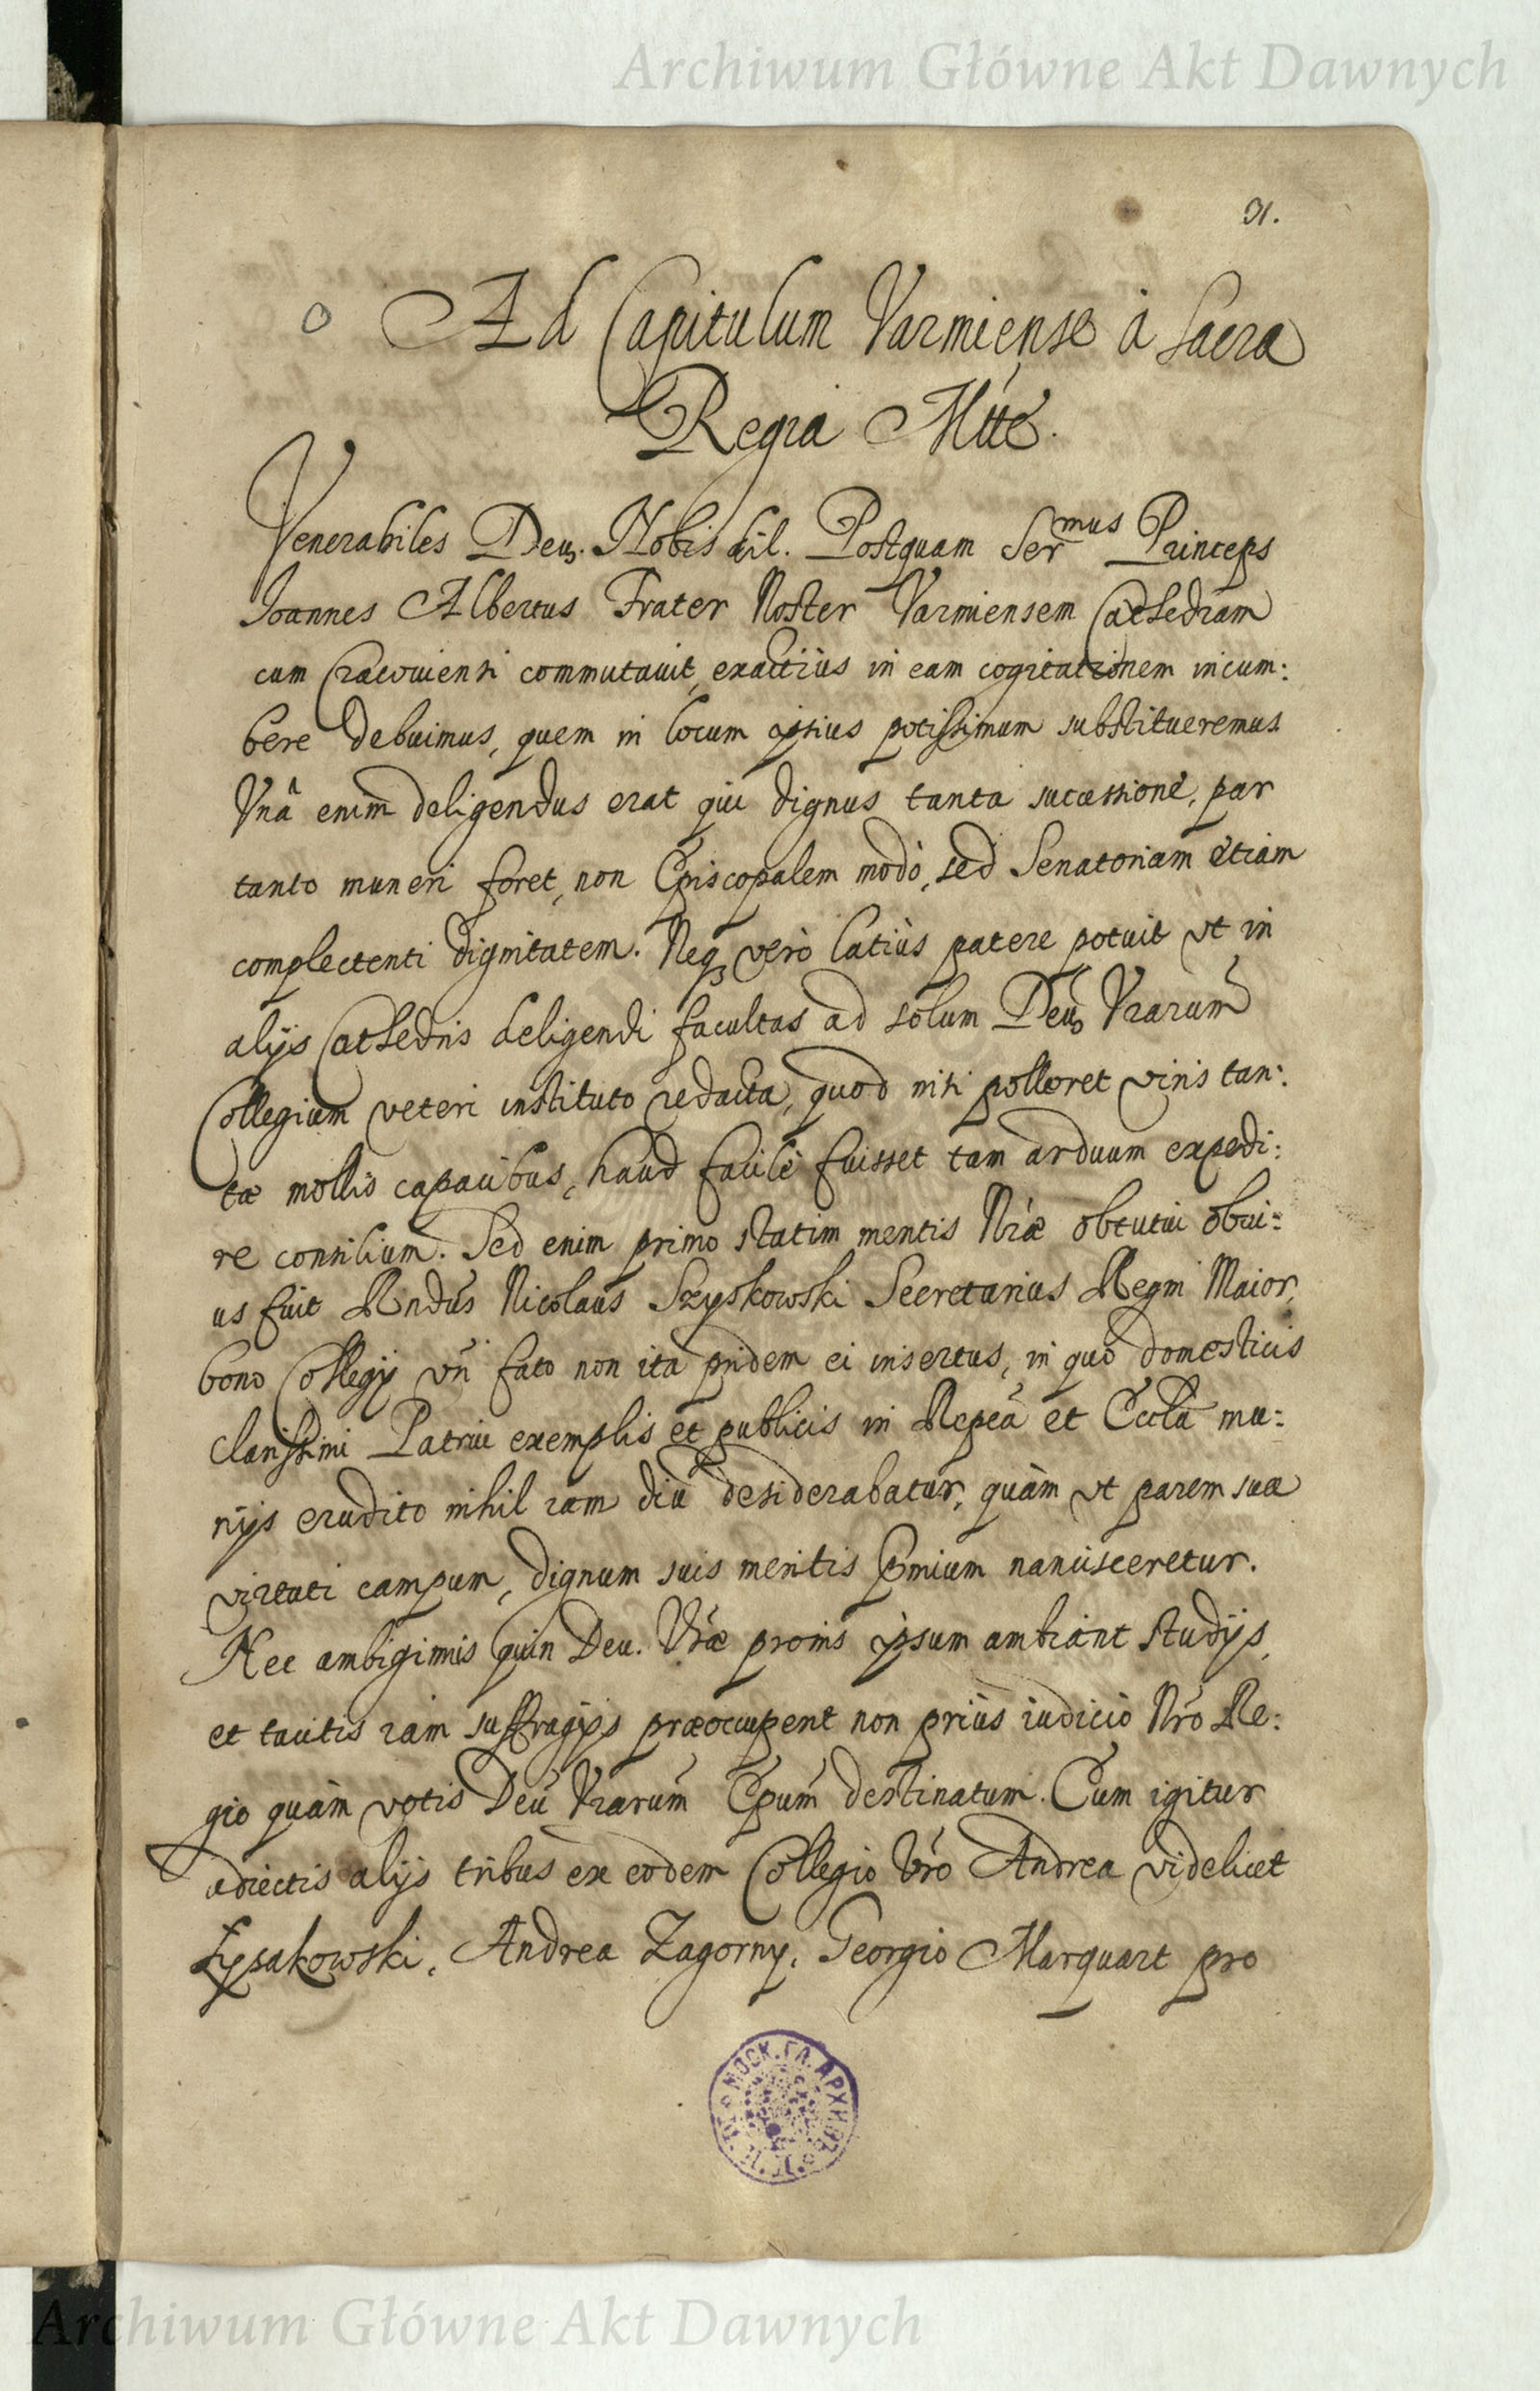 Archiwum Główne Akt Dawnych
31.
Ad Capitulum Varmiense à Sacra
Regia Mtte.
Venerabiles Deuo. Nobis dil. Postquam Sermus Princeps
Joannes Albertus Frater Noster Varmiensem Cathedram
cum Cracouiensi commutauit, exactiùs in eam cogitationem incum:
bere debuimus, quem in locum ipsius potissimum substitueremus
Vnâ enim deligendus erat qui dignus tanta successione, par
tanto muneri foret, non Episcopalem modò, sed Senatoriam etiam
complectenti dignitatem. Neqꝫ verò latiùs patere potuit vt in
alijs Cathedris deligendi facultas ad solum Deuo Vrarum
Collegium veteri instituto redacta, quod nisi polleret viris tan:
tæ mollis capacibus, haud facilè fuisset tam arduum expedi:
re consilium. Sed enim primo statim mentis Nræ obtutui obui:
us fuit Rndus Nicolaus Szyskowski Secretarius Regni Maior,
bono Collegij vri fato non ita pridem ei insertus, in quo domesticis
clarissimi Patrui exemplis et publicis in Repca et Eccla mu:
nijs erudito nihil iam diu desiderabatur, quàm vt parem suæ
virtuti campum, dignum suis meritis pmium nancisceretur.
Nec ambigimus quin Deu. Vræ pronis ipsum ambiant studijs,
et tacitis iam suffragijs præoccupent non priùs iudicio Nro Re:
gio quàm votis Deu Vrarum Epum destinatum. Cum igitur
adiectis alijs tribus ex eodem Collegio Vro Andrea videlicet
Łysakowski, Andrea Zagorny, Georgio Marquart pro
МОСК. ГЛ. АРХИВ
Archiwum Główne Akt Dawnych